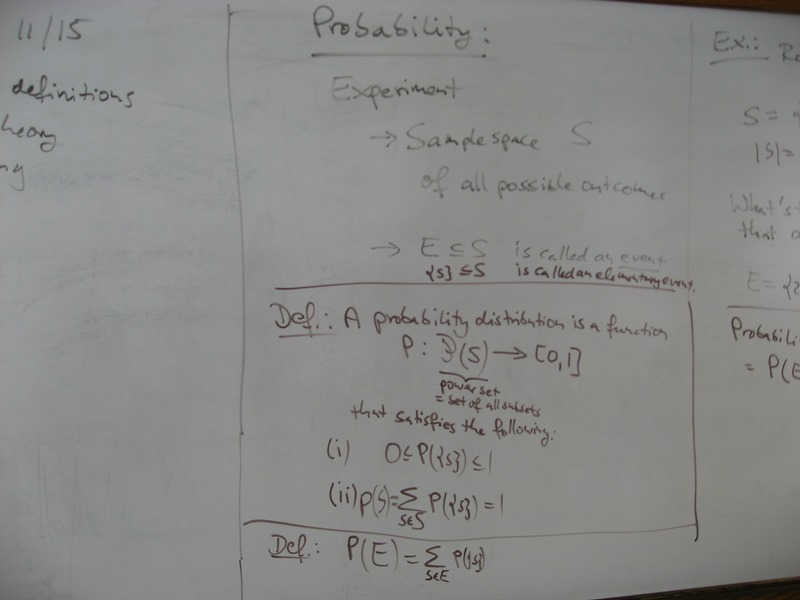 11/15
definitions
heory
ng
Probability:
Experiment
→ Sample space S
of all possible outcomes
→ E ⊆ S is called an event
{s} ⊆ S is called an elementary event.
Def.: A probability distribution is a function
P: P(S) → [0,1]
power set
= set of all subsets
that satisfies the following:
(i) 0 ≤ P({s}) ≤ 1
(ii) P(S) = ∑ P({s}) = 1
s∈S
Def.: P(E) = ∑ P({s})
s∈E
Ex.: R
S =
|S| =
What's
that
E = {2
Probabili
= P(E